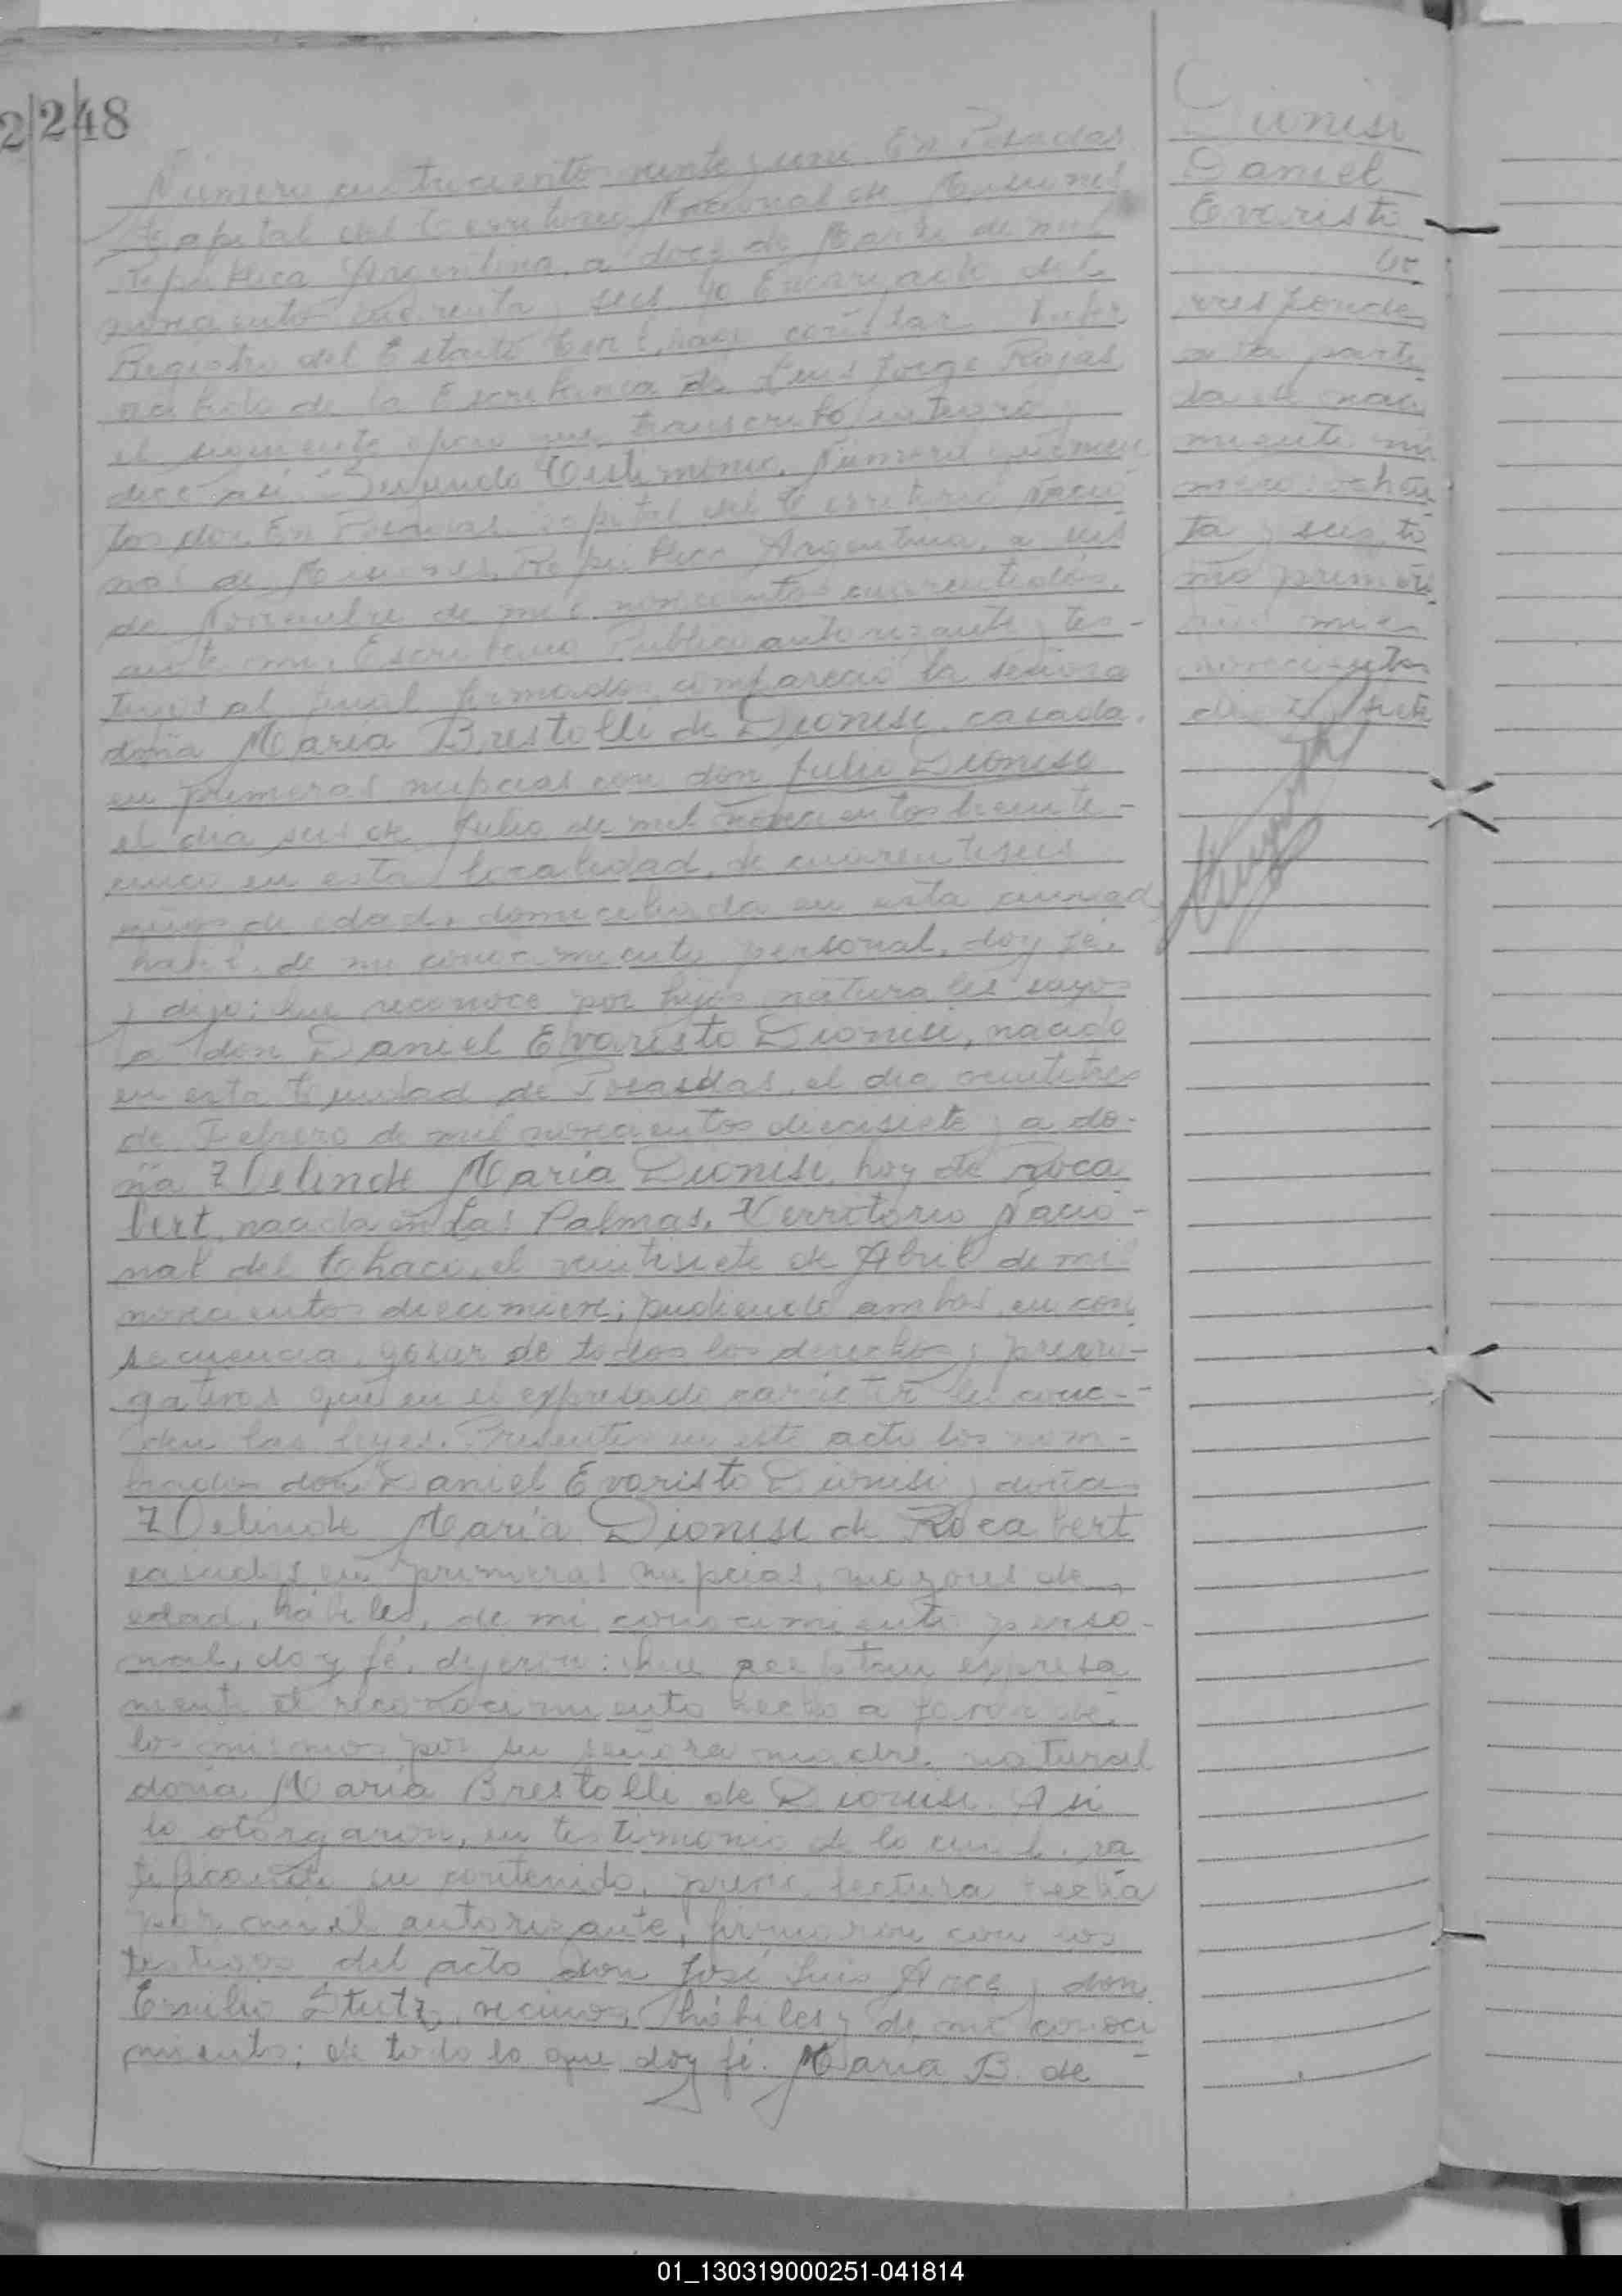 2248
Número cuatrocientos veinte y uno. En Posadas
Capital del Territorio Nacional de Misiones
República Argentina, a doce de Marzo de mil
novecientos cuarenta y seis, Yo Encargado del
Registro del Estado Civil, hago constar
de la Escribanía de Luis Jorge Rojas
el siguiente oficio que transcrito
dice así: Segundo Testimonio. Número quinien
tos dos. En Posadas, Capital del Territorio Nacio
nal de Misiones, República Argentina, a seis
de Noviembre de mil novecientos cuarentidós,
ante mí, Escribano Público autorizante y tes-
tigos al final firmados, compareció la señora
doña María Brestolli de Dionisi, casada
en primeras nupcias con don Julio Dioniso
el día seis de Julio de mil novecientos treinte-
cinco en esta localidad, de cuarentiseis
años de edad, domiciliada en esta ciudad
hábil, de mi conocimiento personal, doy fé,
y dijo: Que reconoce por hijos naturales suyos
a don Daniel Evaristo Dionisi, nacido
en esta Ciudad de Posasdas, el día veintitres
de Febrero de mil novecientos diecisiete y a do-
ña Velinde María Dionisi, hoy de Roca
bert, nacida en Las Palmas, Territorio Nacio-
nal del Chaco, el veintisiete de Abril de mil
novecientos diecinueve; pudiendo ambos, en con
secuencia, gozar de todos los derechos y prerro-
gativas que en el expresado carácter les conc--
den las leyes. Presentes en este acto los nom-
brados don Daniel Evaristo Dionisi y doña
Velinde María Dionisi de Rocabert
casados en primeras nupcias, mayores de
edad, hábiles, de mi conocimiento perso-
nal, doy fé, dijeron: Que aceptan expresa
mente el reconocimiento hecho a favor de
los mismos por su señora madre natural
doña María Brestolli de Dionisi. Así
lo otorgaron, en testimonio de lo cual, ra
tificando su contenido, previa lectura hecha
por mí el autorizante, firmaron con los
testigos del acto don José Luis Arce y don
Emilio Stutz, vecinos, hábiles y de mi conoci
miento; de todo lo que doy fé. María B. de
Dionisi
Daniel
Evaristo
Co
rresponde
a la parti
da de naci
miento nú
mero ochen
ta y seis, to
mo primero
año mil
novecientos
diez y siete
01_130319000251-041814